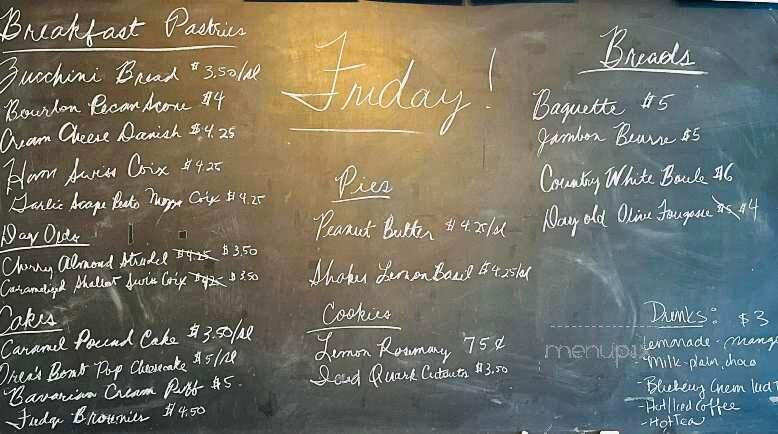 Breakfast Pastries
Zucchini Bread $3.50/sl
Bourbon Pecan Scone $4
Cream Cheese Danish $4.25
Ham Swiss Croix $4.25
Garlic Scape Pesto Mozza Croix $4.25
Day Olds
Cherry Almond Strudel $4.25 $3.50
Caramelized Shallot Swiss Croix $4.25 $3.50
Cakes
Caramel Pound Cake $3.50/sl
Drea's Bomb Pop Cheesecake $5/sl
Bavarian Cream Puff $5
Fudge Brownies $4.50
Friday!
Pies
Peanut Butter $4.25/sl
Shaker Lemon Basil $4.25/sl
Cookies
Lemon Rosemary 75¢
Iced Quark Cutouts $3.50
Breads
Baguette $5
Jambon Beurre $5
Country White Boule $6
Day old Olive Fougasse $5 $4
Drinks: $3
Lemonade - mango
- Milk - plain, choco
- Blueberry
- Hot/Iced Coffee
- Hot Tea
menupix